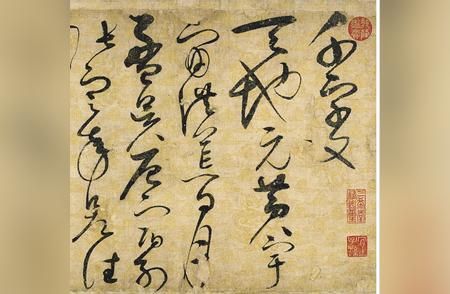 千字文
天地元黃宇
宙洪荒日月
盈昃辰宿列
張寒來暑往